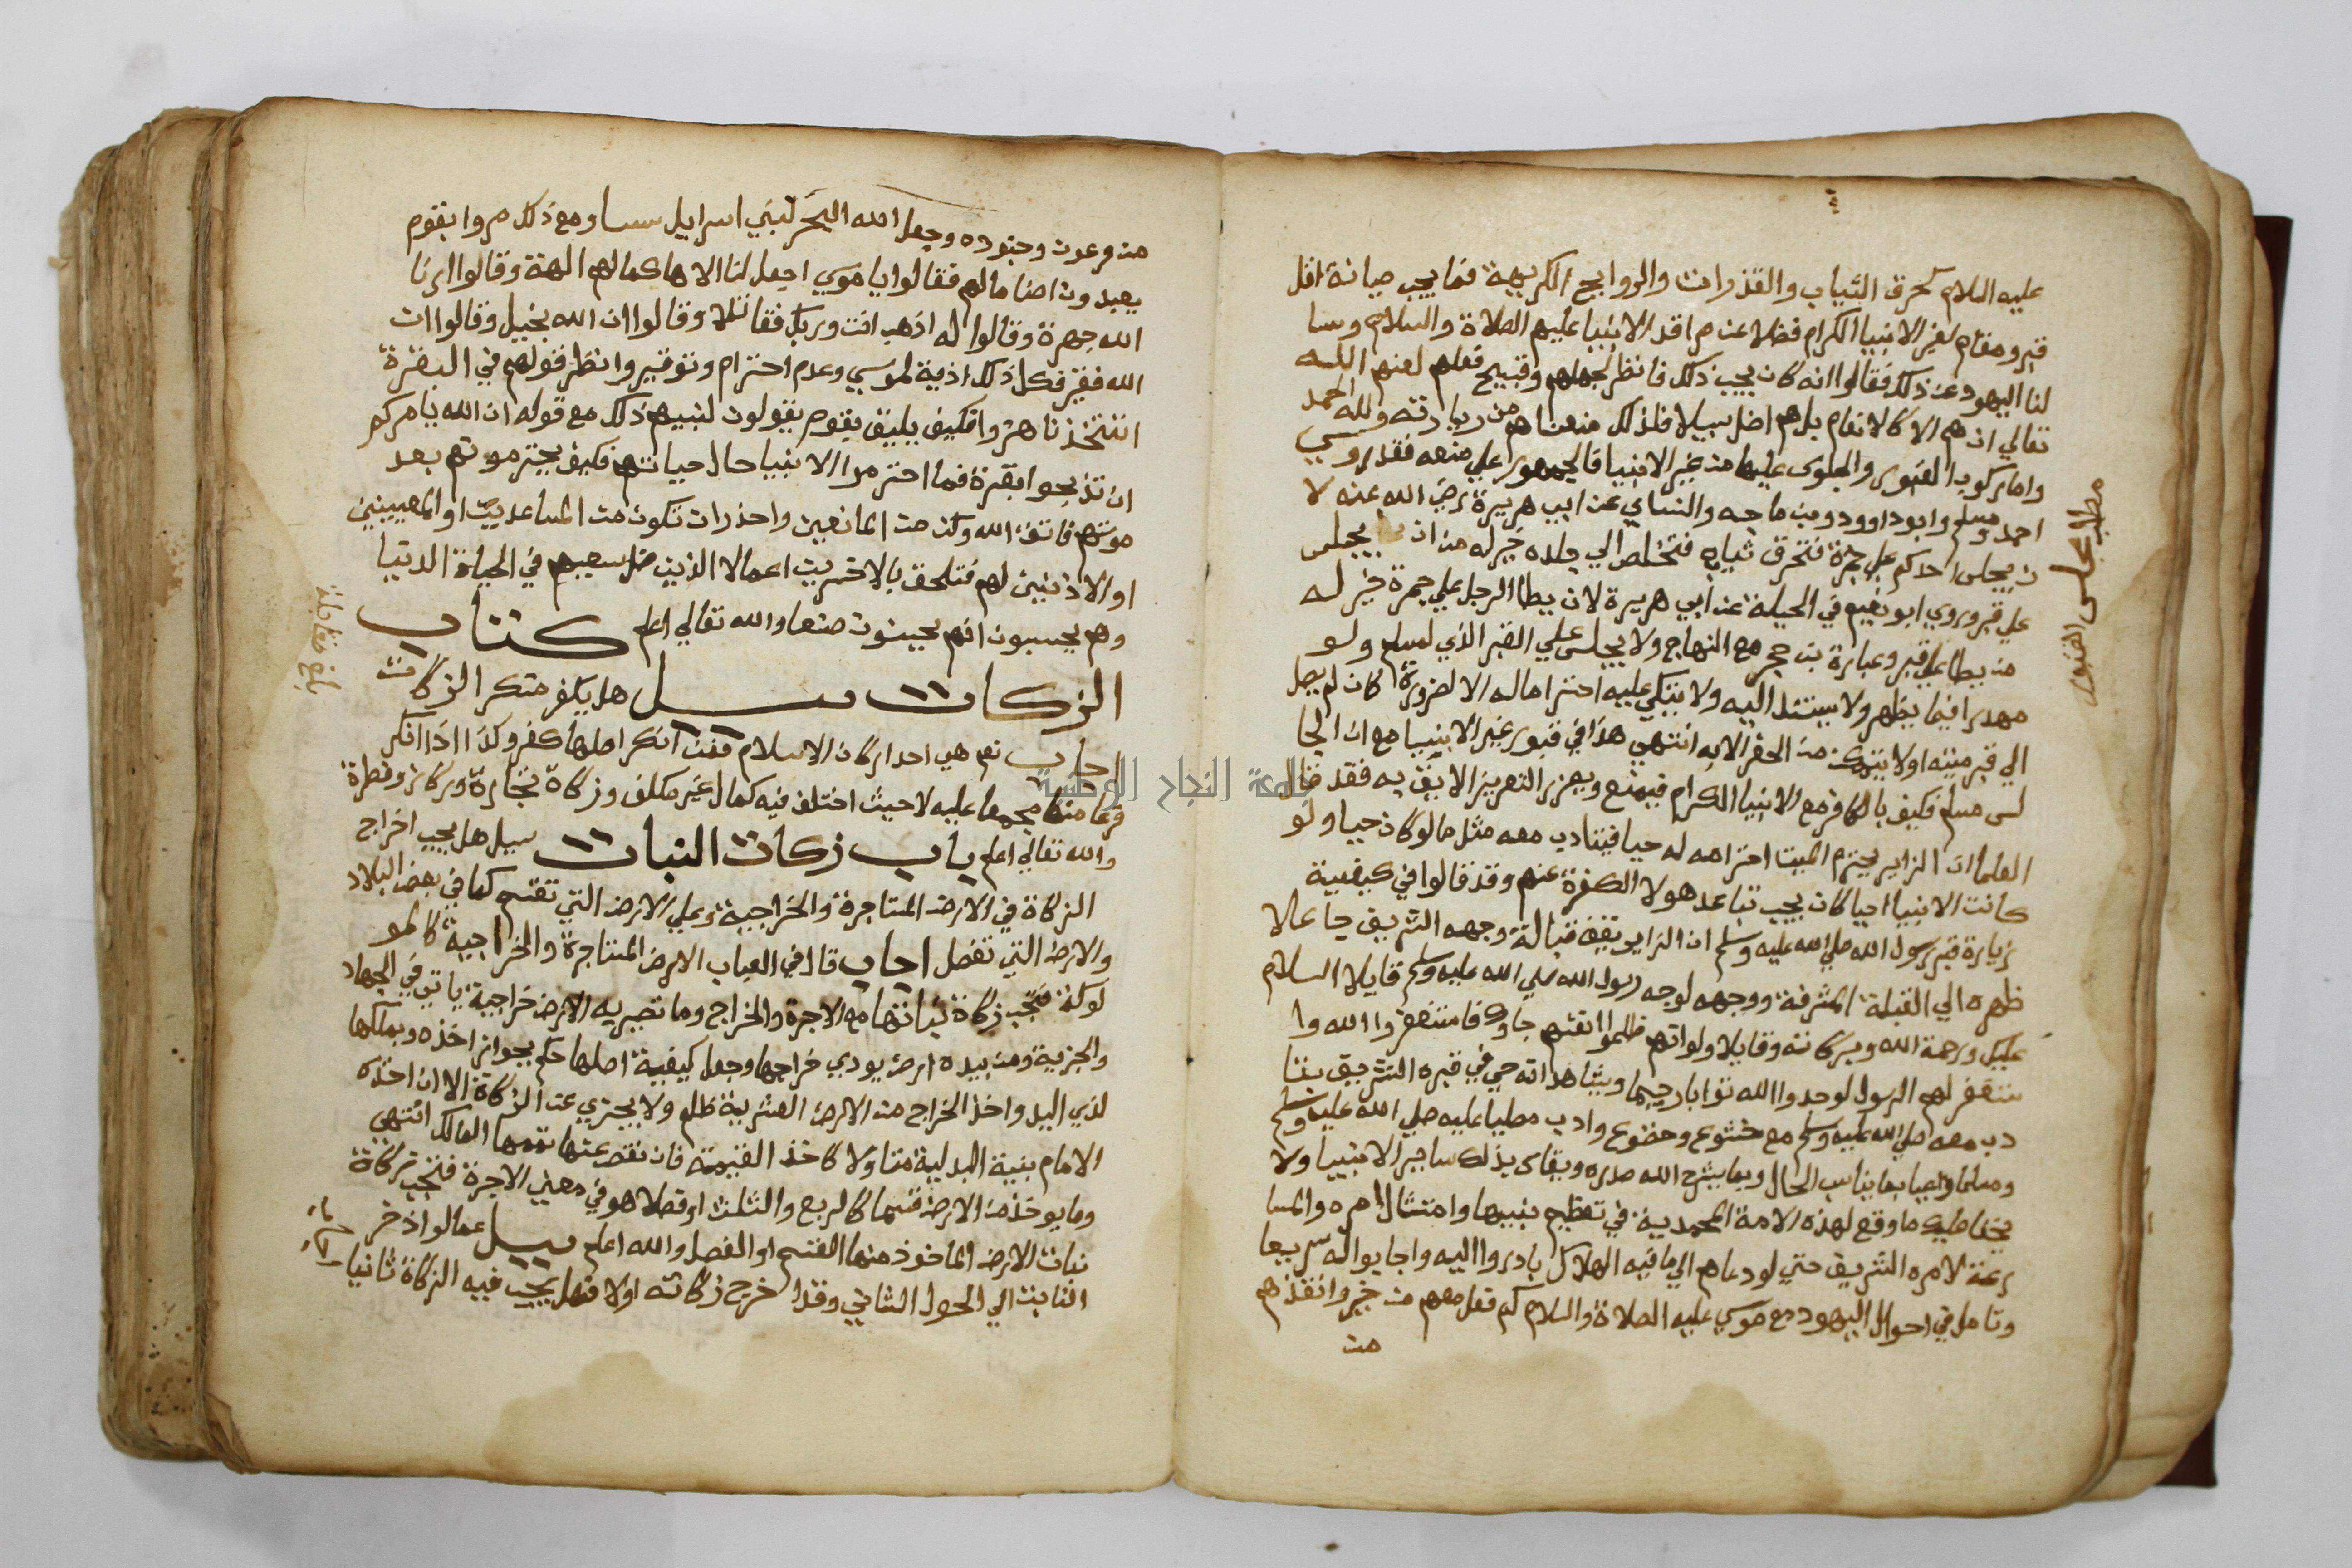 عليه السلام كحرق الثياب والقذرات والروايح الكريهة فما يجب صيانة اقل
قبر ومقام لغير الانبيا الكرام فضلا عن مراقد الانبيا عليهم الصلاة والسلام وسا
لنا اليهود عن ذلك فقالوا انه كان يجب ذلك فانظر لجهلهم وقبيح فعلهم لعنهم الله
تعالي ان هم الا كالانعام بل هم اضل سبيلا فلذلك منعناهم من زيارته ولله الحمد
واما ركوب القبور والجلوس عليها من غير الانبيا فالجمهور علي منعه فقد روي
احمد ومسلم وابو داوود وبن ماجه والنساي عن ابي هريرة رضي الله عنه لا
ن يجلس احدكم علي جمرة فتحرق ثيابه فتخلص الي جلده خير له من ان يجلس
علي قبر وروي ابو نعيم في الحيلة عن ابي هريرة لان يطا الرجل علي جمرة خير له
من يطا علي قبر وعبارة بن حجر مع النهاج ولا يجلس علي القبر الذي لمسلم ولو
مهدرا فيما يظهر ولا يستند اليه ولا يتكي عليه احتراما له الا لضرورة كان لم يصل
الي قبر ميته او لا يتمكن من الحفر الا به انتهي هذا في قبور غير الانبيا مع ان الجا
لس مسلم فكيف بالكافر مع الانبيا الكرام فيمنع ويعزر التعزير الايق به فقد قال
العلما ان الزاير يحترم الميت احترامه له حيا فيتادب معه مثل ما لو كان حيا ولو
كانت الانبيا احيا كان يجب تباعد هولا الكفرة عنهم وقد قالوا في كيفية
زيارة قبر رسول الله صلي الله عليه وسلم ان الزاير يقف قبالة وجهه الشريف جاعلا
ظهره الي القبلة المشرفة ووجهه لوجه رسول الله صلي الله عليه وسلم قايلا السلام
عليك ورحمة الله وبركاته وقايلا ولو انهم ظلموا انفسهم جاوك فاستغفروا الله وا
ستغفر لهم الرسول لوجدوا الله توابا رحيما ويشاهد انه حي في قبره الشريف يتا
دب معه صلي الله عليه وسلم مع خشوع وخضوع وادب مصليا عليه صلي الله عليه وسلم
ومسلما بما يناسب الحال وبما يشرح الله صدره ويقاس بذلك ساير الانبيا ولا
يخفا عليك ما وقع لهذه الامة المحمدية في تعظيم نبيها وامتثال امره والمسا
رعة لامره الشريف حتي لو دعاهم الي ما فيه الهلاك بادروا اليه واجابوا له سريعا
وتامل في احوال اليهود مع موسي عليه الصلاة والسلام كم فعل معهم من خير وانقذهم
من
مطلب الجلوس القبور
من فرعون وجنوده وجعل الله البحر لبني اسرايل يبسا ومع ذلك مروا بقوم
يعبدون اصناما لهم فقالوا يا موسي اجعل لنا الاها كما لهم الهة وقالوا ارنا
الله جهرة وقالوا له اذهب انت وربك فقاتلا وقالوا ان الله بخيل وقالوا ان
الله فقير فكل ذلك اذية لموسي وعدم احترام وتوقير وانظر قولهم في البقرة
اتتخذنا هزوا فكيف يليق بقوم يقولون لنبيهم ذلك مع قوله ان الله يامركم
ان تذبحوا بقرة فما احترموا الانبيا حال حياتهم فكيف يحترموهم بعد
موتهم فاتق الله وكن من المانعين واحذر ان تكون من المساعدين او المعينين
او الاذنين لهم فتلحق بالاخسرين اعمالا الذين ضل سعيهم في الحياة الدنيا
وهم يحسبون انهم يحسنون صنعا والله تعالي اعلم كتاب
الزكات سيل هل يكفر منكر الزكات
اجاب نعم هي احد اركان الاسلام فمن انكر اصلها كفر وكذا اذا انكر
فرعا منها مجمعا عليه لا حيث اختلف فيه كمال غير مكلف وزكاة تجارة وركاز وفطرة
والله تعالي اعلم باب زكات النبات سيل هل يجب اخراج
الزكاة في الارض المتاجرة والخراجية وعلي الارض التي تقسم كما في بعض البلاد
والارض التي تفصل اجاب قال في العباب الارض المستاجرة والخراجية كالمو
لوكة فتجب زكاة نباتها مع الاجرة والخراج وما تصير به الارض خراجية ياتي في الجهاد
والجزية ومن بيده ارض يودي خراجها وجهل كيفية اصلها حكم بجواز اخذه ويملكها
لذي اليد واخذ الخراج من الارض العشرية ظلم ولا يجزي عن الزكاة الا ان اخذه
الامام بنية البدلية متاولا كاخذ القيمة فان نقص عنها تممها المالك انتهي
وما يوخذ من الارض قسما كالربع والثلث او فصلا هو في معني الاجرة فتجب زكاة
نبات الارض الماخوذ منها القسم او الفصل والله اعلم سيل عما لو اذخر
النابت الي الحول الثاني وقد اخرج زكاته اولا فهل يجب فيه الزكاة ثانيا
بلغ مقابلة
جامعة النجاح الوطنية